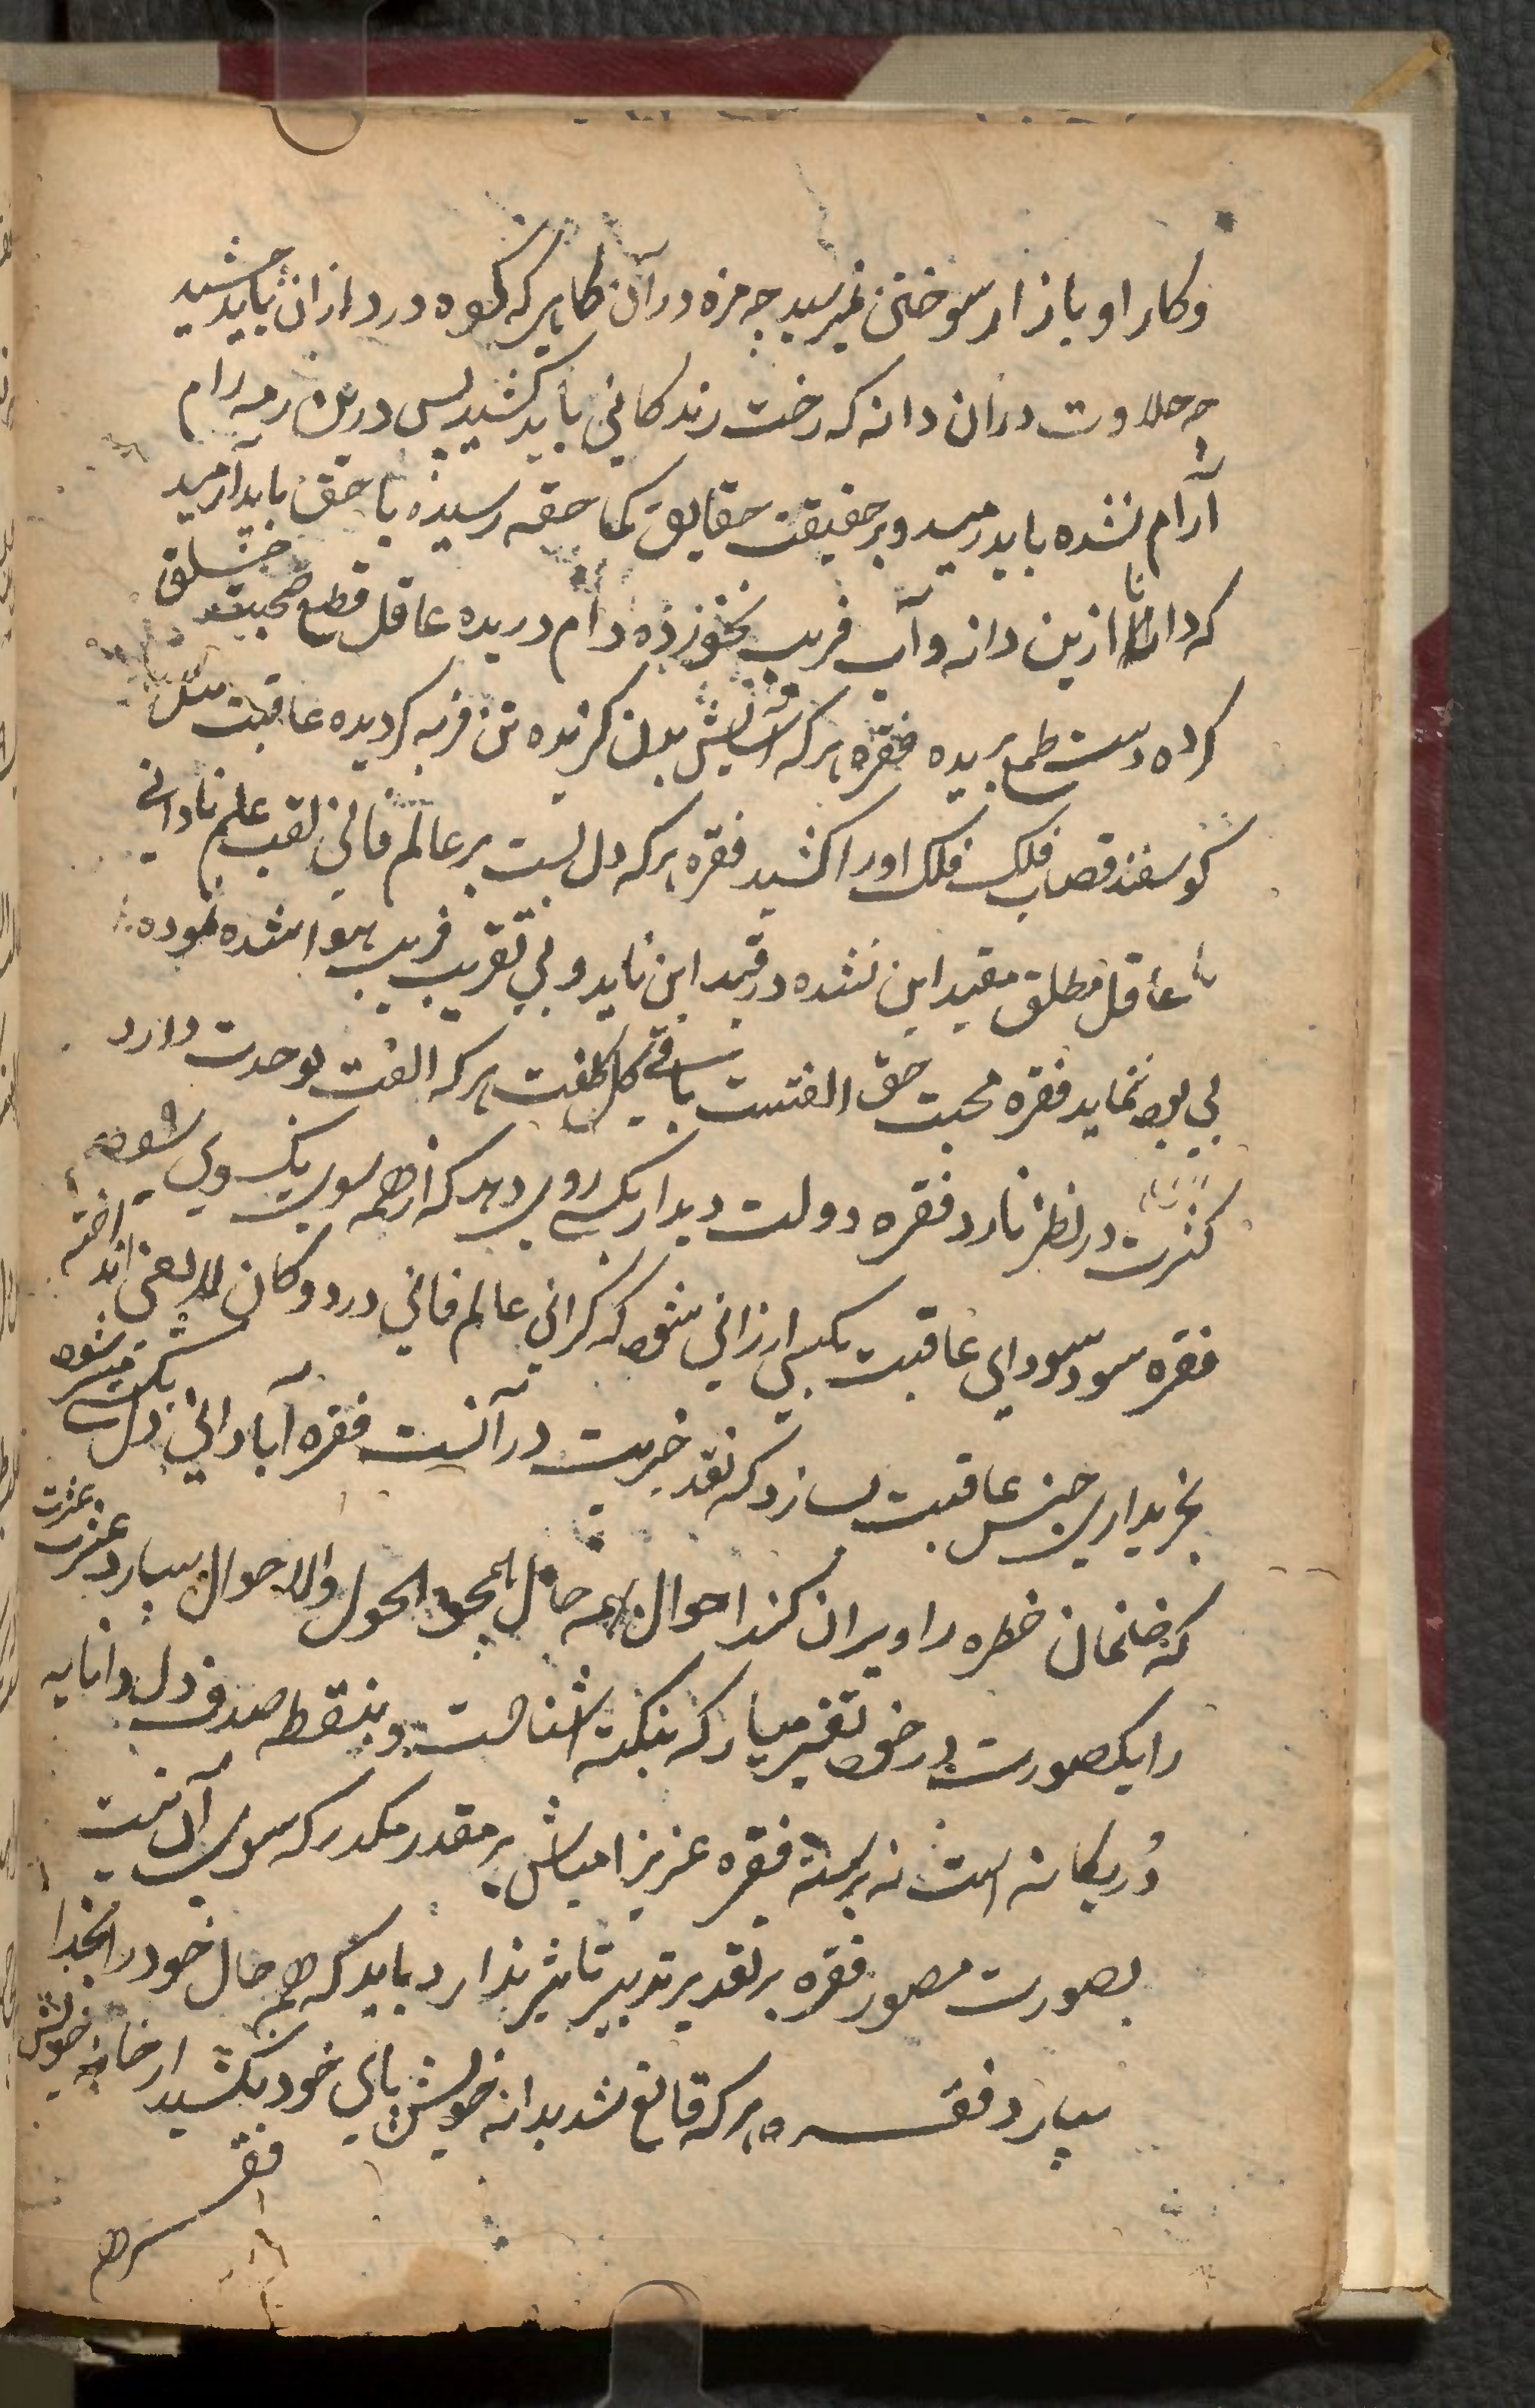 وکار او بازار سوختن نمیرسید چه مزه در آن کابر که کوه درد ازان باید چشید
چه حلاوت دران دانه که رخت زندکانی باید کشید پس درین رمه رام
آرام نشده باید رمید و بر حقیقت حقایق کما حقه رسیده با حق باید آرمید
که دانا ازین دانه و آب فریب نخورده دام دریده عاقل قطع صحبت خلق
کرده دست طمع بریده فقره هرکه آسایش بدن کزیده تن فربه کردیده عاقبت مثل
کوسفند قصاب فلک اورا کشید فقره هرکه دل بست بر عالم فانی لقب علم نادانی
یا عاقل مطلق مقید این نشده در قید این ناید و بی تقریب فریب هوا شده نموده
بی بود نماید فقره محبت حق الفتست باقی کل کلفت هرکه الفت بوحدت دارد
کثرت در نظر نارد فقره دولت دیدار یکسی روی دهد که از همه سوی یکسوی شود
فقره سود سودای عاقبت بکسی ارزانی شود که کرانی عالم فانی در دوکان لا یعنی انداخته
بخریداری جنس عاقبت بسازد که نقد خیریت در آنست فقره آبادانی دل بکسی میسر شود
که خانمان خطره را ویران کند احوال همه حال بمحول الحول والاحوال سپارد عزت عثرت
را یکصورت در خود تغیر میار که بنکته شناخت و بنقطه صدف دل دانا به
در یکانه است نه برسته فقره عزیزا مباش بر مقدر مکدر که سوی آن نیست
بصورت مصور فقره بر تقدیر تدبیر تاثیر ندارد باید که همه حال خود را بخدا
سپارد فقره هرکه قانع نشد بدانه خویش پای خود بکشید از خانه خویش
فقره